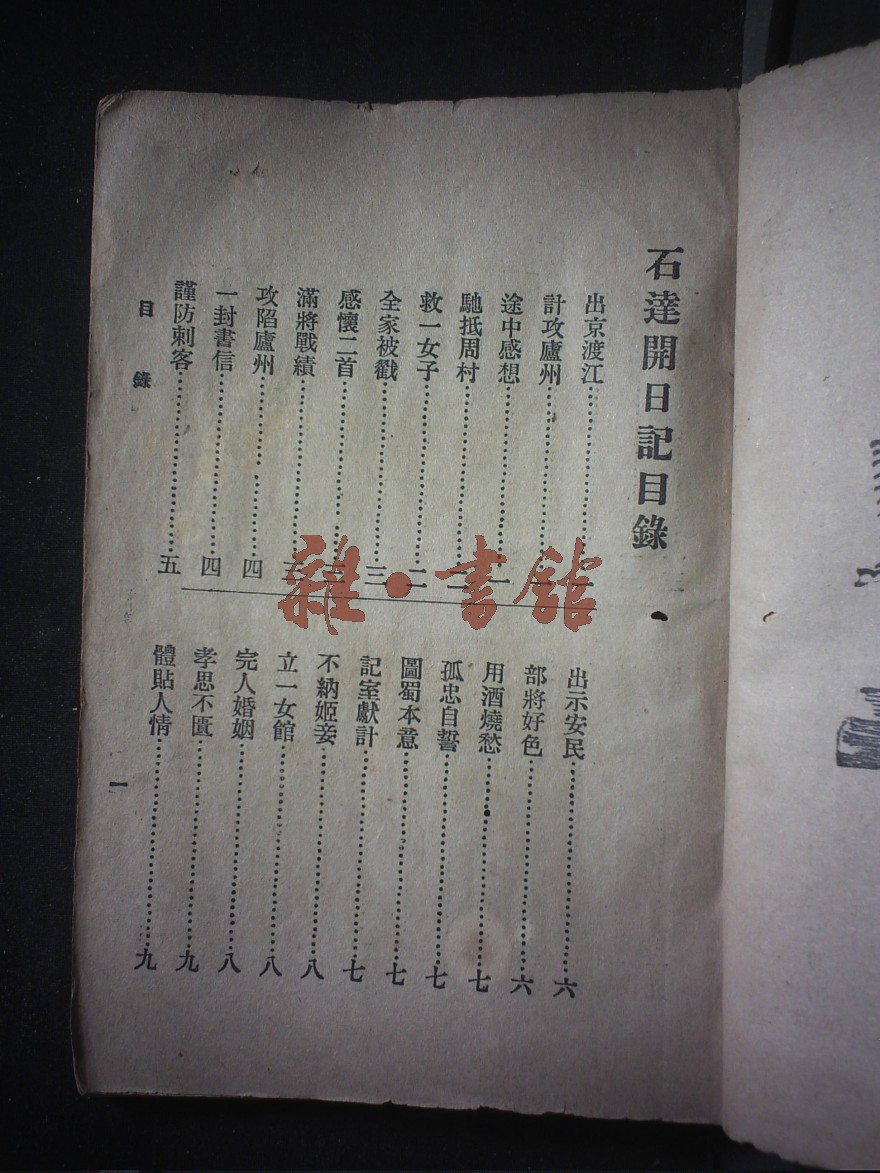 石達開日記目錄
出京渡江
計攻廬州
途中感想
馳抵周村
救一女子………二
全家被戮………三
感懷二首
滿將戰績
攻陷廬州………四
一封書信………四
謹防刺客………五
出示安民………六
部將好色………六
用酒燒愁………七
孤忠自誓………七
圖蜀本意………七
記室獻計………七
不納姬妾………八
立一女館………八
完人婚姻………八
孝思不匱………九
體貼人情………九
目錄
一
雜·書館